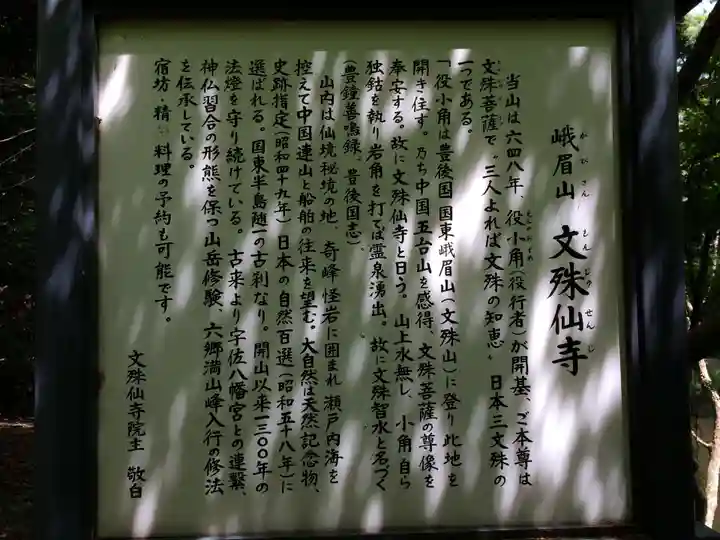 峨眉山 文殊仙寺
がびさん もんじゅせんじ
当山は六四八年、役小角(役行者)が開基、ご本尊は
文殊菩薩で〝三人よれば文殊の知恵〟日本三文殊の
一つである。
「役小角は豊後国国東峨眉山(文殊山)に登り此地を
開き住す。乃ち中国五台山を感得、文殊菩薩の尊像を
奉安する。故に文殊仙寺と曰う。山上水無し、小角自ら
独鈷を執り岩角を打てば霊泉湧出。故に文殊智水と名づく
(豊鐘善鳴録、豊後国志)
山内は仙境秘境の地、奇峰怪岩に囲まれ瀬戸内海を
控えて中国連山と船舶の往来を望む。大自然は天然記念物、
史跡指定(昭和四十九年)日本の自然百選(昭和五十八年)に
選ばれる。国東半島随一の古刹なり。開山以来一三〇〇年の
法燈を守り続けている。古来より宇佐八幡宮との連繋、
神仏習合の形態を保つ山岳修験、六郷満山峰入行の修法
を伝承している。
宿坊・精 料理の予約も可能です。
文殊仙寺院主 敬白